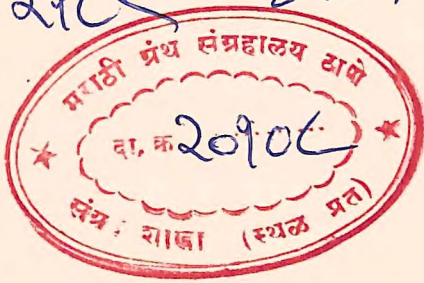 मराठी ग्रंथ संग्रहालय ठाणे
दा. क्र २०१०८
संग्र : शाखा (स्थळ प्रत)